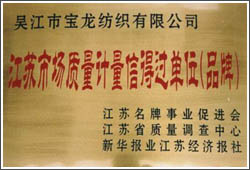 吴江市宝龙纺织有限公司
江苏市场质量计量信得过单位(品牌)
江苏名牌事业促进会
江苏省质量调查中心
新华报业江苏经济报社